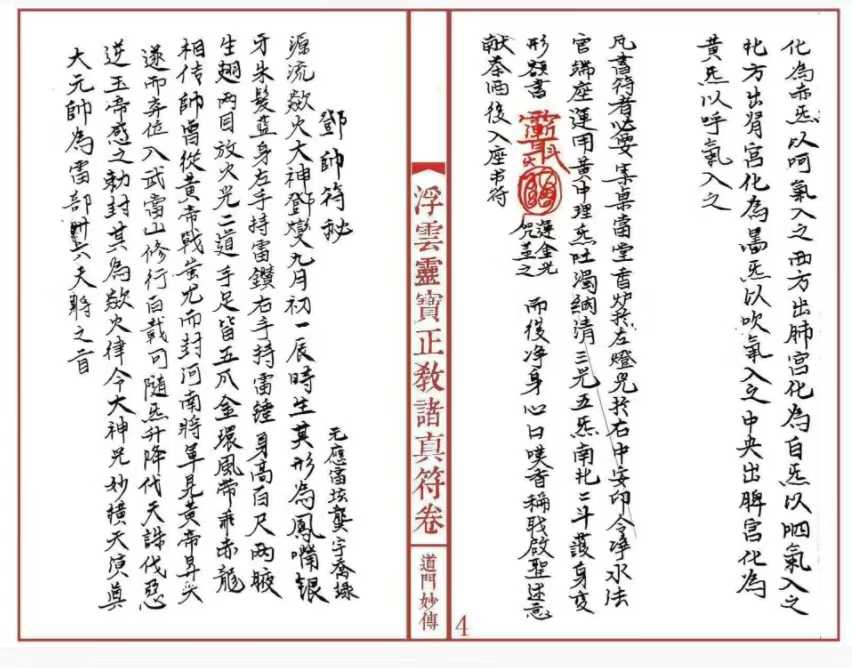 化為赤炁以呵氣入之西方出肺宮化為白炁以呬氣入之
北方出腎宮化為黑炁以吹氣入之中央出脾宮化為
黃炁以呼氣入之
凡書符者必要案桌當堂香炉於左燈光於右中安印令淨水法
官端座運用黄中理炁吐濁納清三光五炁南北二斗護身变
形 書 運金光咒盖之 而後净身心口噗香稱耺啟聖述意
献茶洒後入座书符
浮雲靈寶正教諸真符卷
道門妙傳
4
鄧帥符秘
元應富坛龔宇喬錄
源流欻火大神鄧燮九月初一辰時生其形為鳳嘴銀
牙朱髮藍身左手持雷鑽右手持雷鎚身高百尺兩腋
生翅两目放火光二道手足皆五爪金環風带乘赤龍
相传帥曾從黃帝戰蚩尤而封河南將軍見黄帝昇天
遂而弃位入武當山修行百載可隨炁升降代天誅伐惡
逆玉帝感之勅封其為欻火律令大神咒妙積天演真
大元帥為雷部卅六天將之首